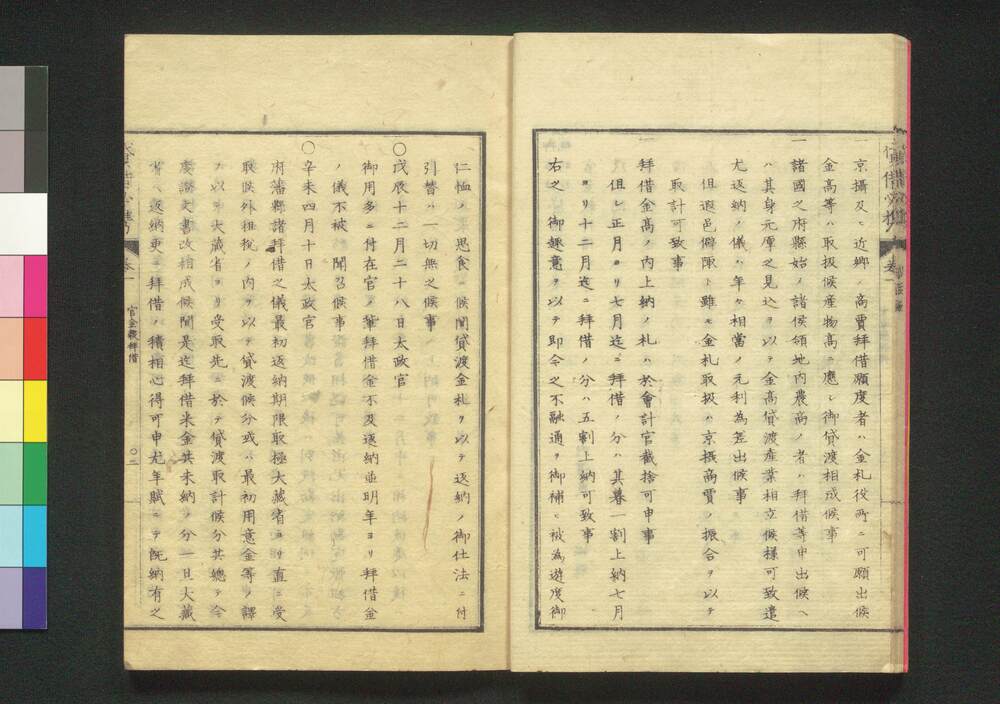 一京攝及ヒ近郷ノ商賈拜借願度者ハ金札役所ニ可願出候
金高等ハ取扱候産物高ニ應シ御貸渡相成候事
一諸國之府縣始メ諸侯領地内農商ノ者ハ拜借等申出候ヘ
ハ其身元厚之見込ヲ以テ金高貸渡産業相立候樣可致遣
尤返納ノ儀ハ年々相當ノ元利為差出候事
但遐邑僻陬ト雖モ金札取扱ハ京攝商賈ノ振合ヲ以テ
取計可致事
一拜借金高ノ内上納ノ札ハ於會計官截捨可申事
但シ正月ヨリ七月迄ニ拜借ノ分ハ其暮一割上納七月
ヨリ十二月迄ニ拜借ノ分ハ五割上納可致事
右之 御趣意ヲ以テ即今之不融通ヲ御補ヒ被為遊度御
仁恤ノ 思食ニ候間貸渡金札ヲ以テ返納ノ御仕法ニ付
引替ハ一切無之候事
〇戊辰十二月二十八日太政官
御用多ニ付在官ノ輩拜借金不及返納並明年ヨリ拜借金
ノ儀不被 聞召候事
〇辛未四月十日太政官
府藩縣諸拜借之儀最初返納期限取極大藏省ヨリ直ニ受
取候外租税ノ内ヲ以テ貸渡候分或ハ最初用意金等ノ譯
ヲ以テ大藏省ヨリ受取先ニ於テ貸渡取計候分其總テ今
度證文書改相成候間是迄拜借米金其未納ノ分一旦大藏
省ヘ返納更ニ拜借ノ積相心得可申尤年賦ニテ既納有之
卷一
官金穀拜借
〇二
卷一